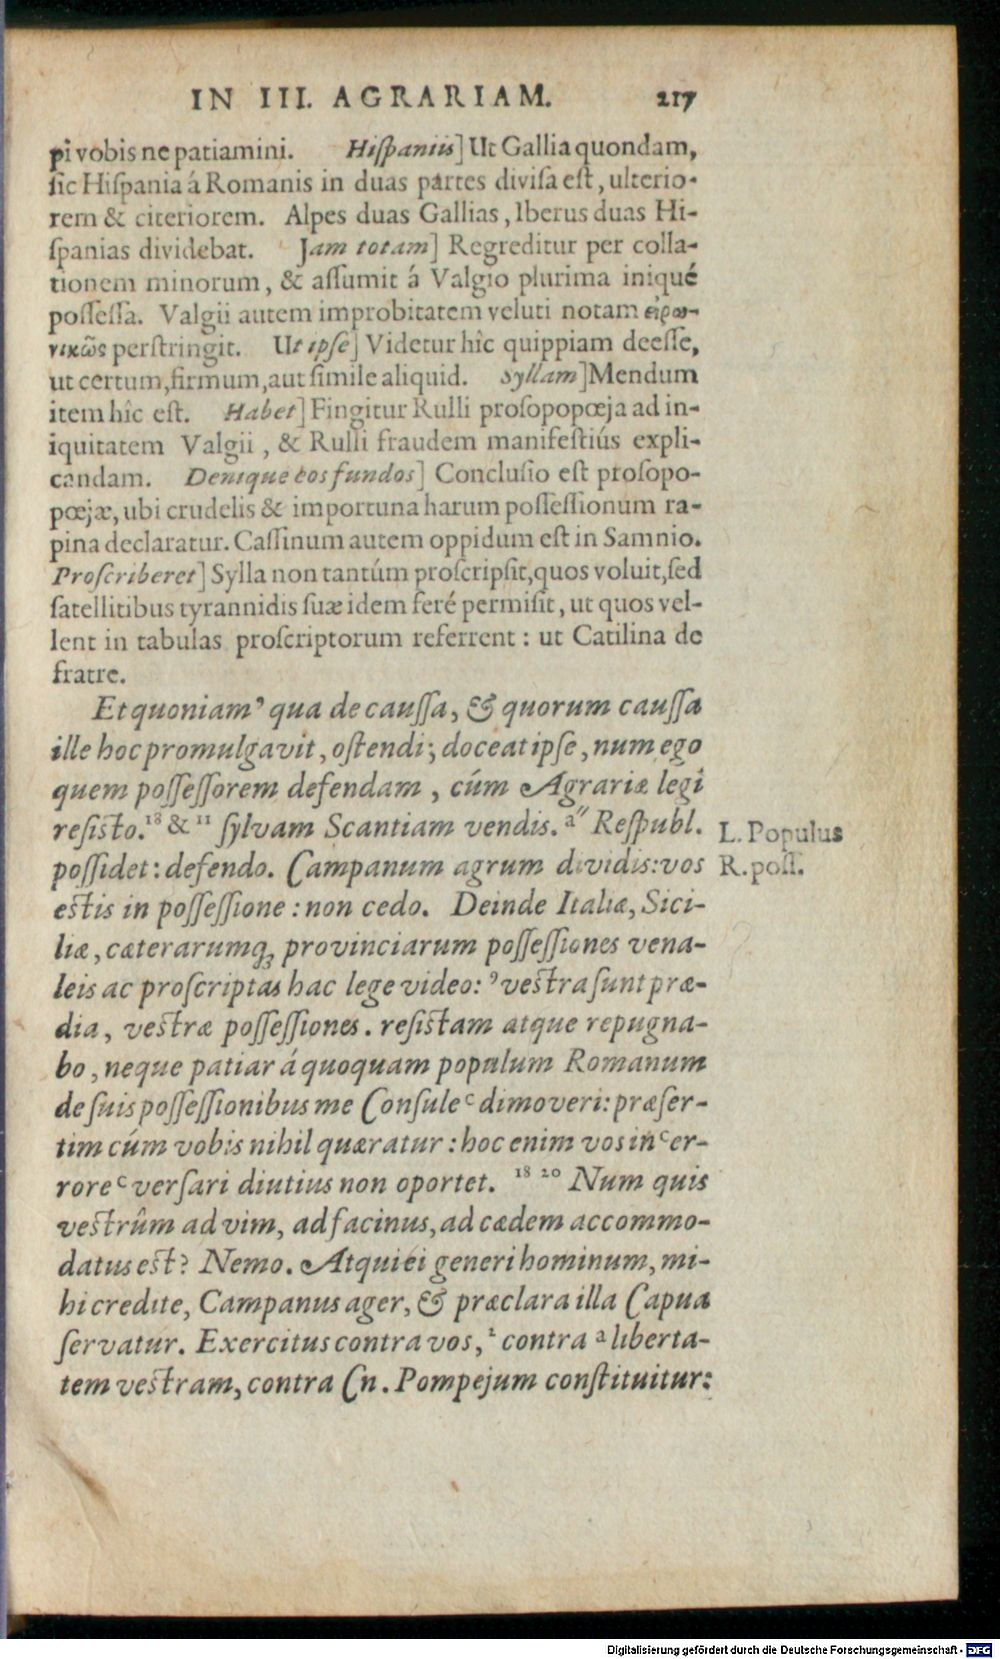 IN III. AGRARIAM. 217
pi vobis ne patiamini. Hiſpaniis] Ut Gallia quondam,
ſic Hiſpania á Romanis in duas partes diviſa eſt, ulterio-
rem & citeriorem. Alpes duas Gallias, Iberus duas Hi-
ſpanias dividebat. Jam totam] Regreditur per colla-
tionem minorum, & aſſumit á Valgio plurima iniqué
poſſeſſa. Valgii autem improbitatem veluti notam εἰρω-
νικῶς perſtringit. Ut ipſe] Videtur hîc quippiam deeſſe,
ut certum, firmum, aut ſimile aliquid. Syllam] Mendum
item hîc eſt. Habet] Fingitur Rulli proſopopœja ad in-
iquitatem Valgii, & Rulli fraudem manifeſtiús expli-
candam. Denique eos fundos] Concluſio eſt proſopo-
pœjæ, ubi crudelis & importuna harum poſſeſſionum ra-
pina declaratur. Caſſinum autem oppidum eſt in Samnio.
Proſcriberet] Sylla non tantúm proſcripſit, quos voluit, ſed
ſatellitibus tyrannidis ſuæ idem feré permiſit, ut quos vel-
lent in tabulas proſcriptorum referrent : ut Catilina de
fratre.
Et quoniam ’ qua de cauſſa, & quorum cauſſa
ille hoc promulgavit, oſtendi; doceat ipſe, num ego
quem poſſeſſorem defendam, cúm Agrariæ legi
reſiſto. 18 & 11 ſylvam Scantiam vendis. a″ Reſpubl.
L. Populus
poſſidet : defendo. Campanum agrum dividis: vos
R. poſſ.
eſtis in poſſeſſione : non cedo. Deinde Italiæ, Sici-
liæ, cæterarumq; provinciarum poſſeſſiones vena-
leis ac proſcriptas hac lege video: ’ veſtra ſunt præ-
dia, veſtræ poſſeſſiones. reſiſtam atque repugna-
bo, neque patiar á quoquam populum Romanum
de ſuis poſſeſſionibus me Conſule c dimoveri: præſer-
tim cúm vobis nihil quæratur : hoc enim vos in c er-
rore c verſari diutius non oportet. 18 20 Num quis
veſtrûm ad vim, ad facinus, ad cædem accommo-
datus eſt? Nemo. Atqui ei generi hominum, mi-
hi credite, Campanus ager, & præclara illa Capua
ſervatur. Exercitus contra vos, 2 contra a liberta-
tem veſtram, contra Cn. Pompejum conſtituitur:
Digitalisierung gefördert durch die Deutsche Forschungsgemeinschaft - DFG